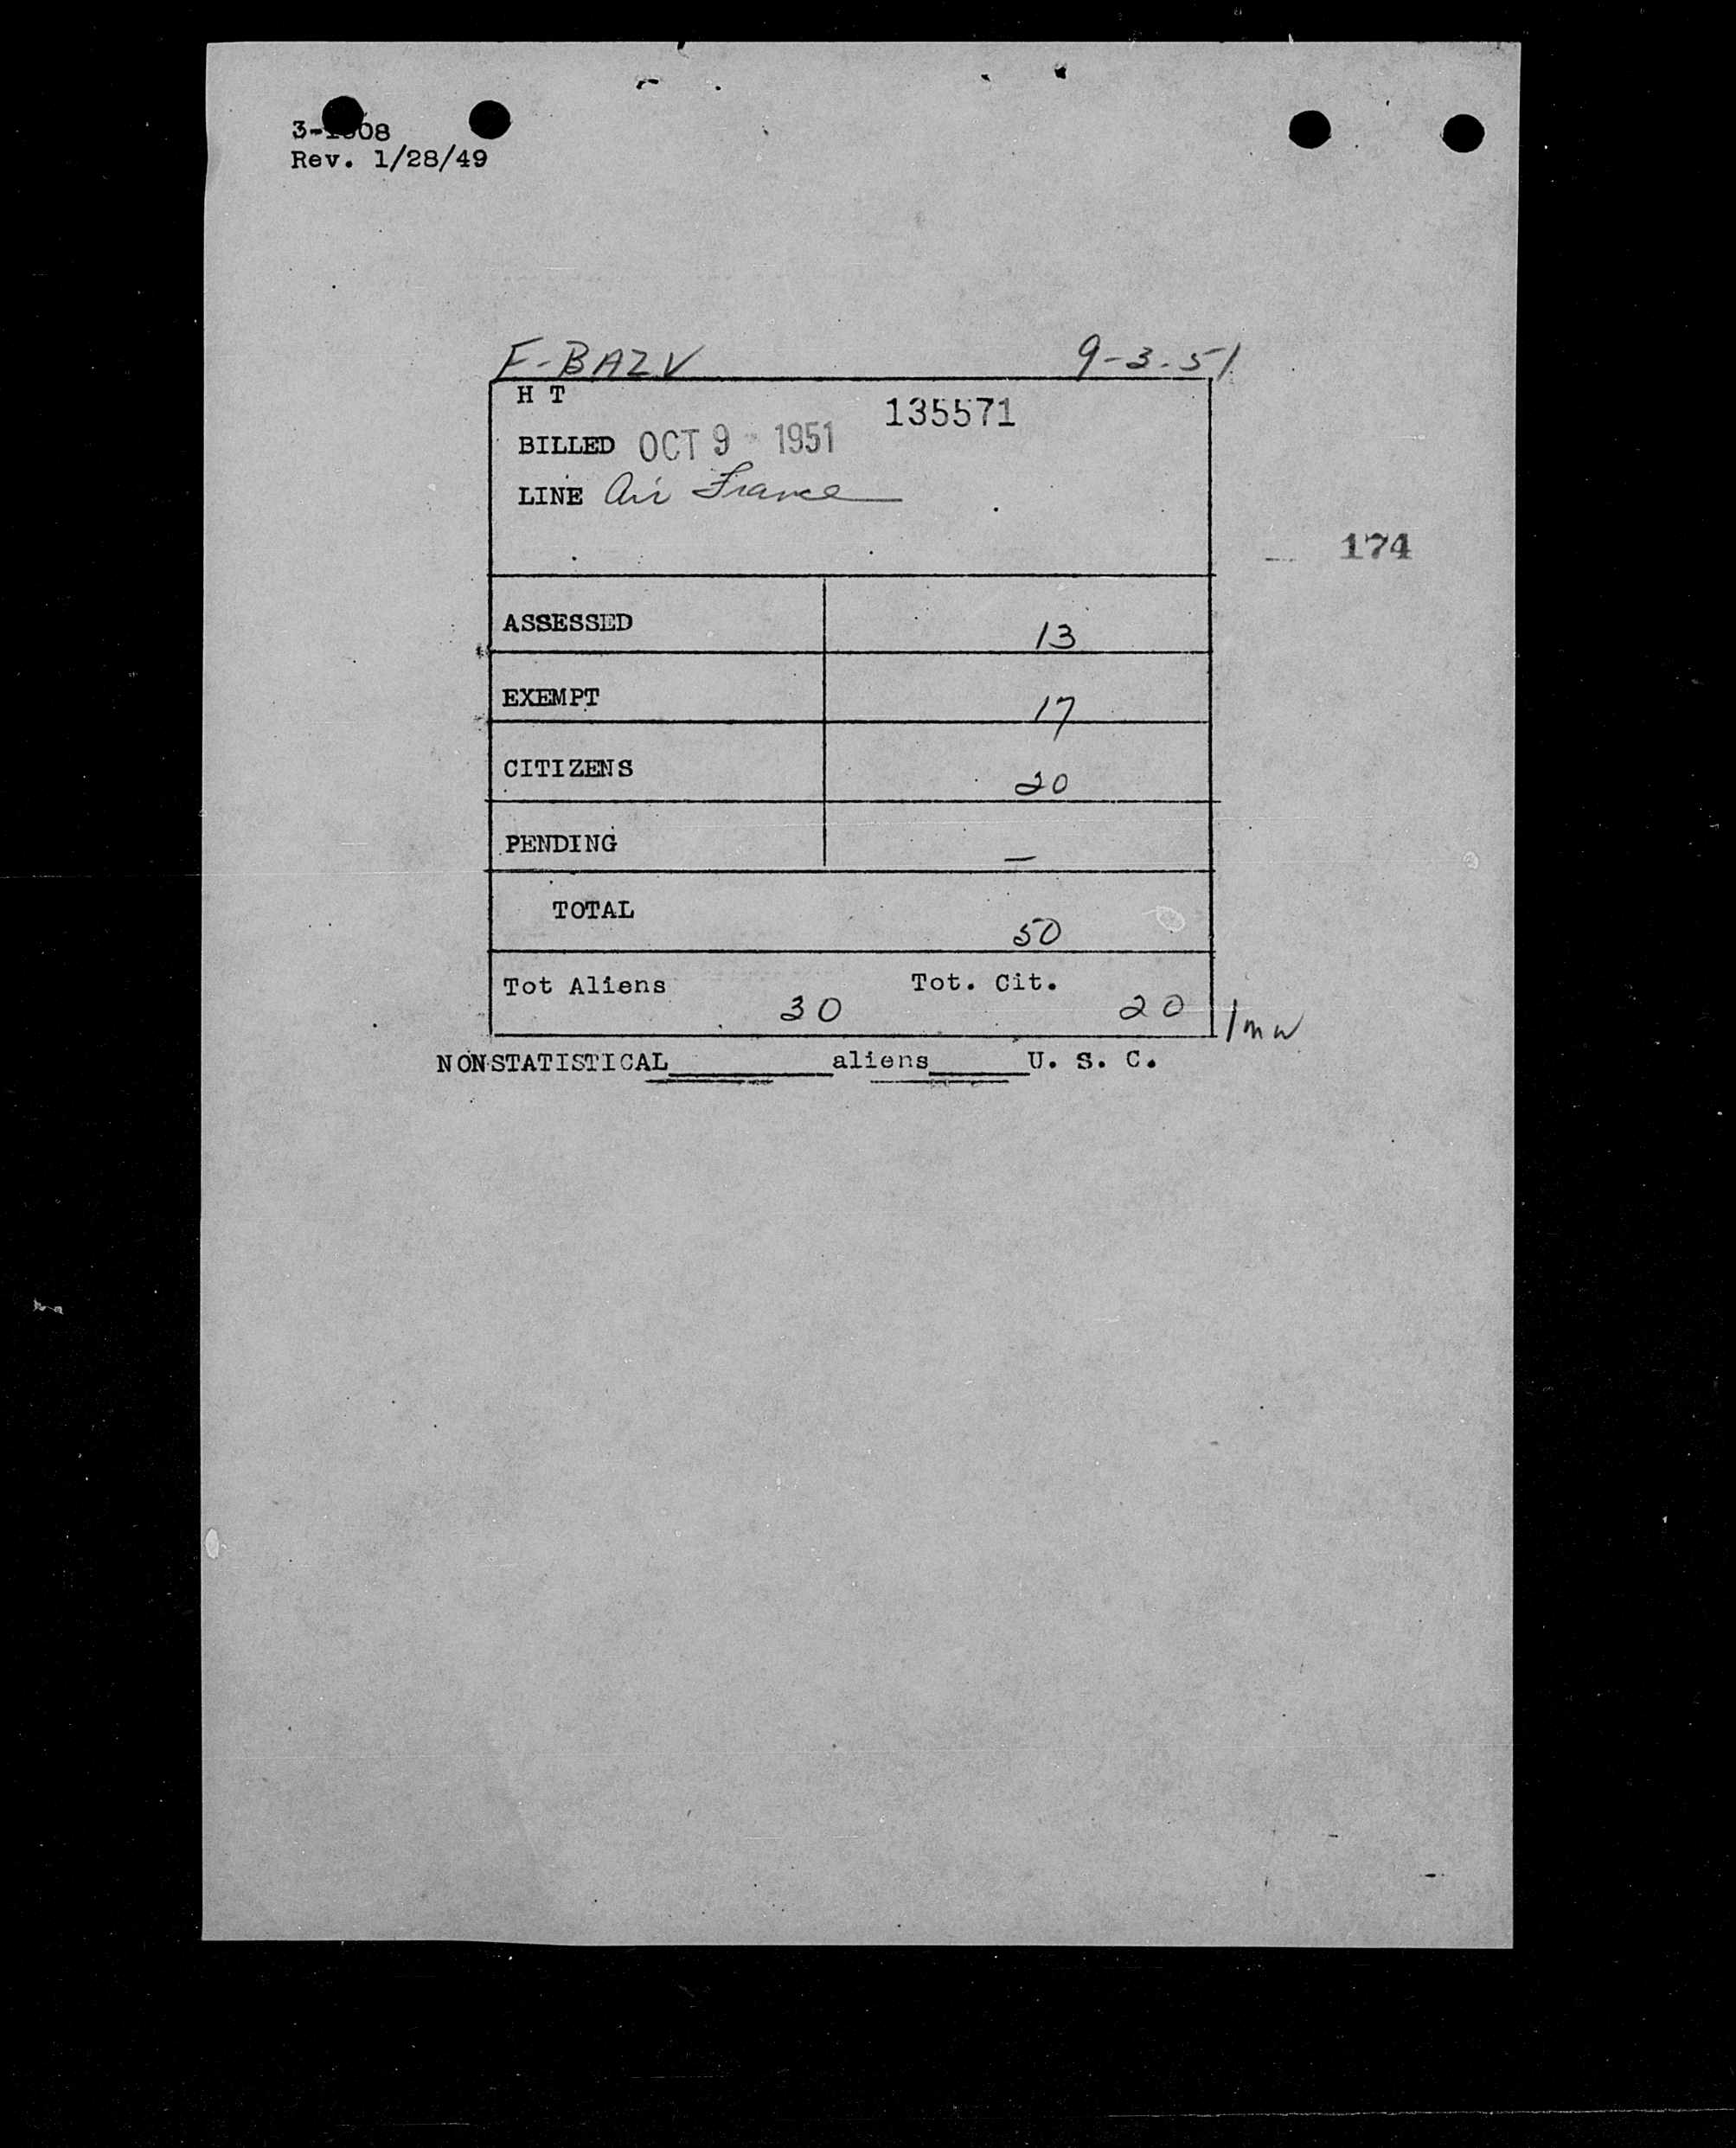 Rev. 1/28/49
F-BAZV 9-3-51
H T
135571
BILLED OCT 9 1951
LINE Air France
174
ASSESSED 13
EXEMPT 17
CITIZENS 20
PENDING —
TOTAL 50
Tot Aliens 30 Tot. Cit. 20
NONSTATISTICAL__________aliens______U. S. C.